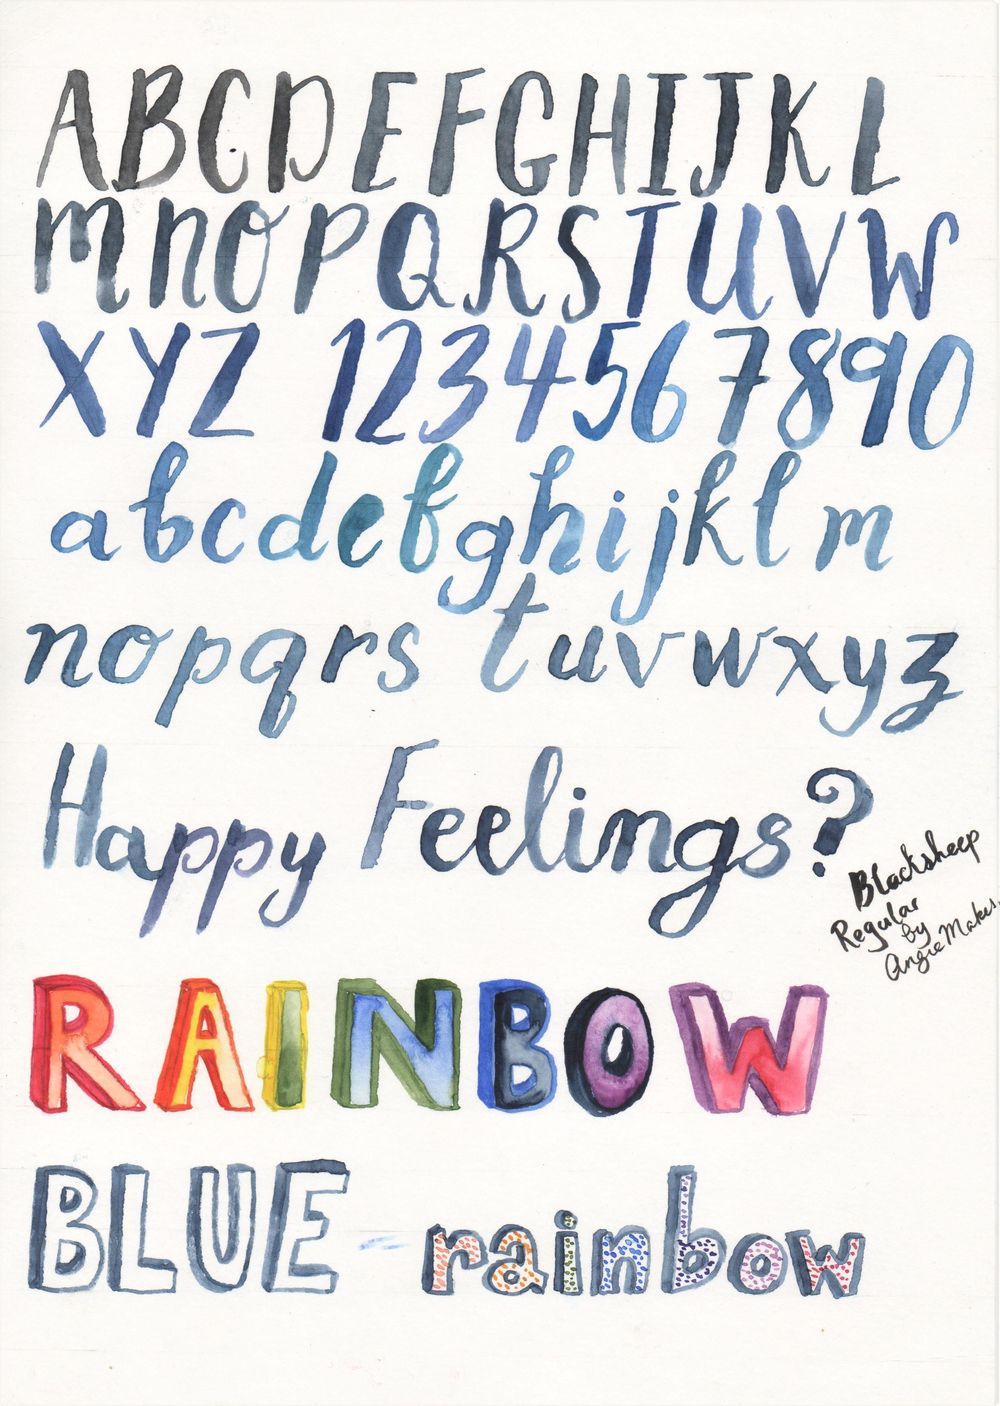 ABCDEFGHIJKL
mnOPQRSTUVW
XYZ 1234567890
abcdefghijklm
nopqrs tuvwxyz
Happy Feelings?
Blacksheep
Regular
by
Angie Makes.
RAINBOW
BLUE rainbow